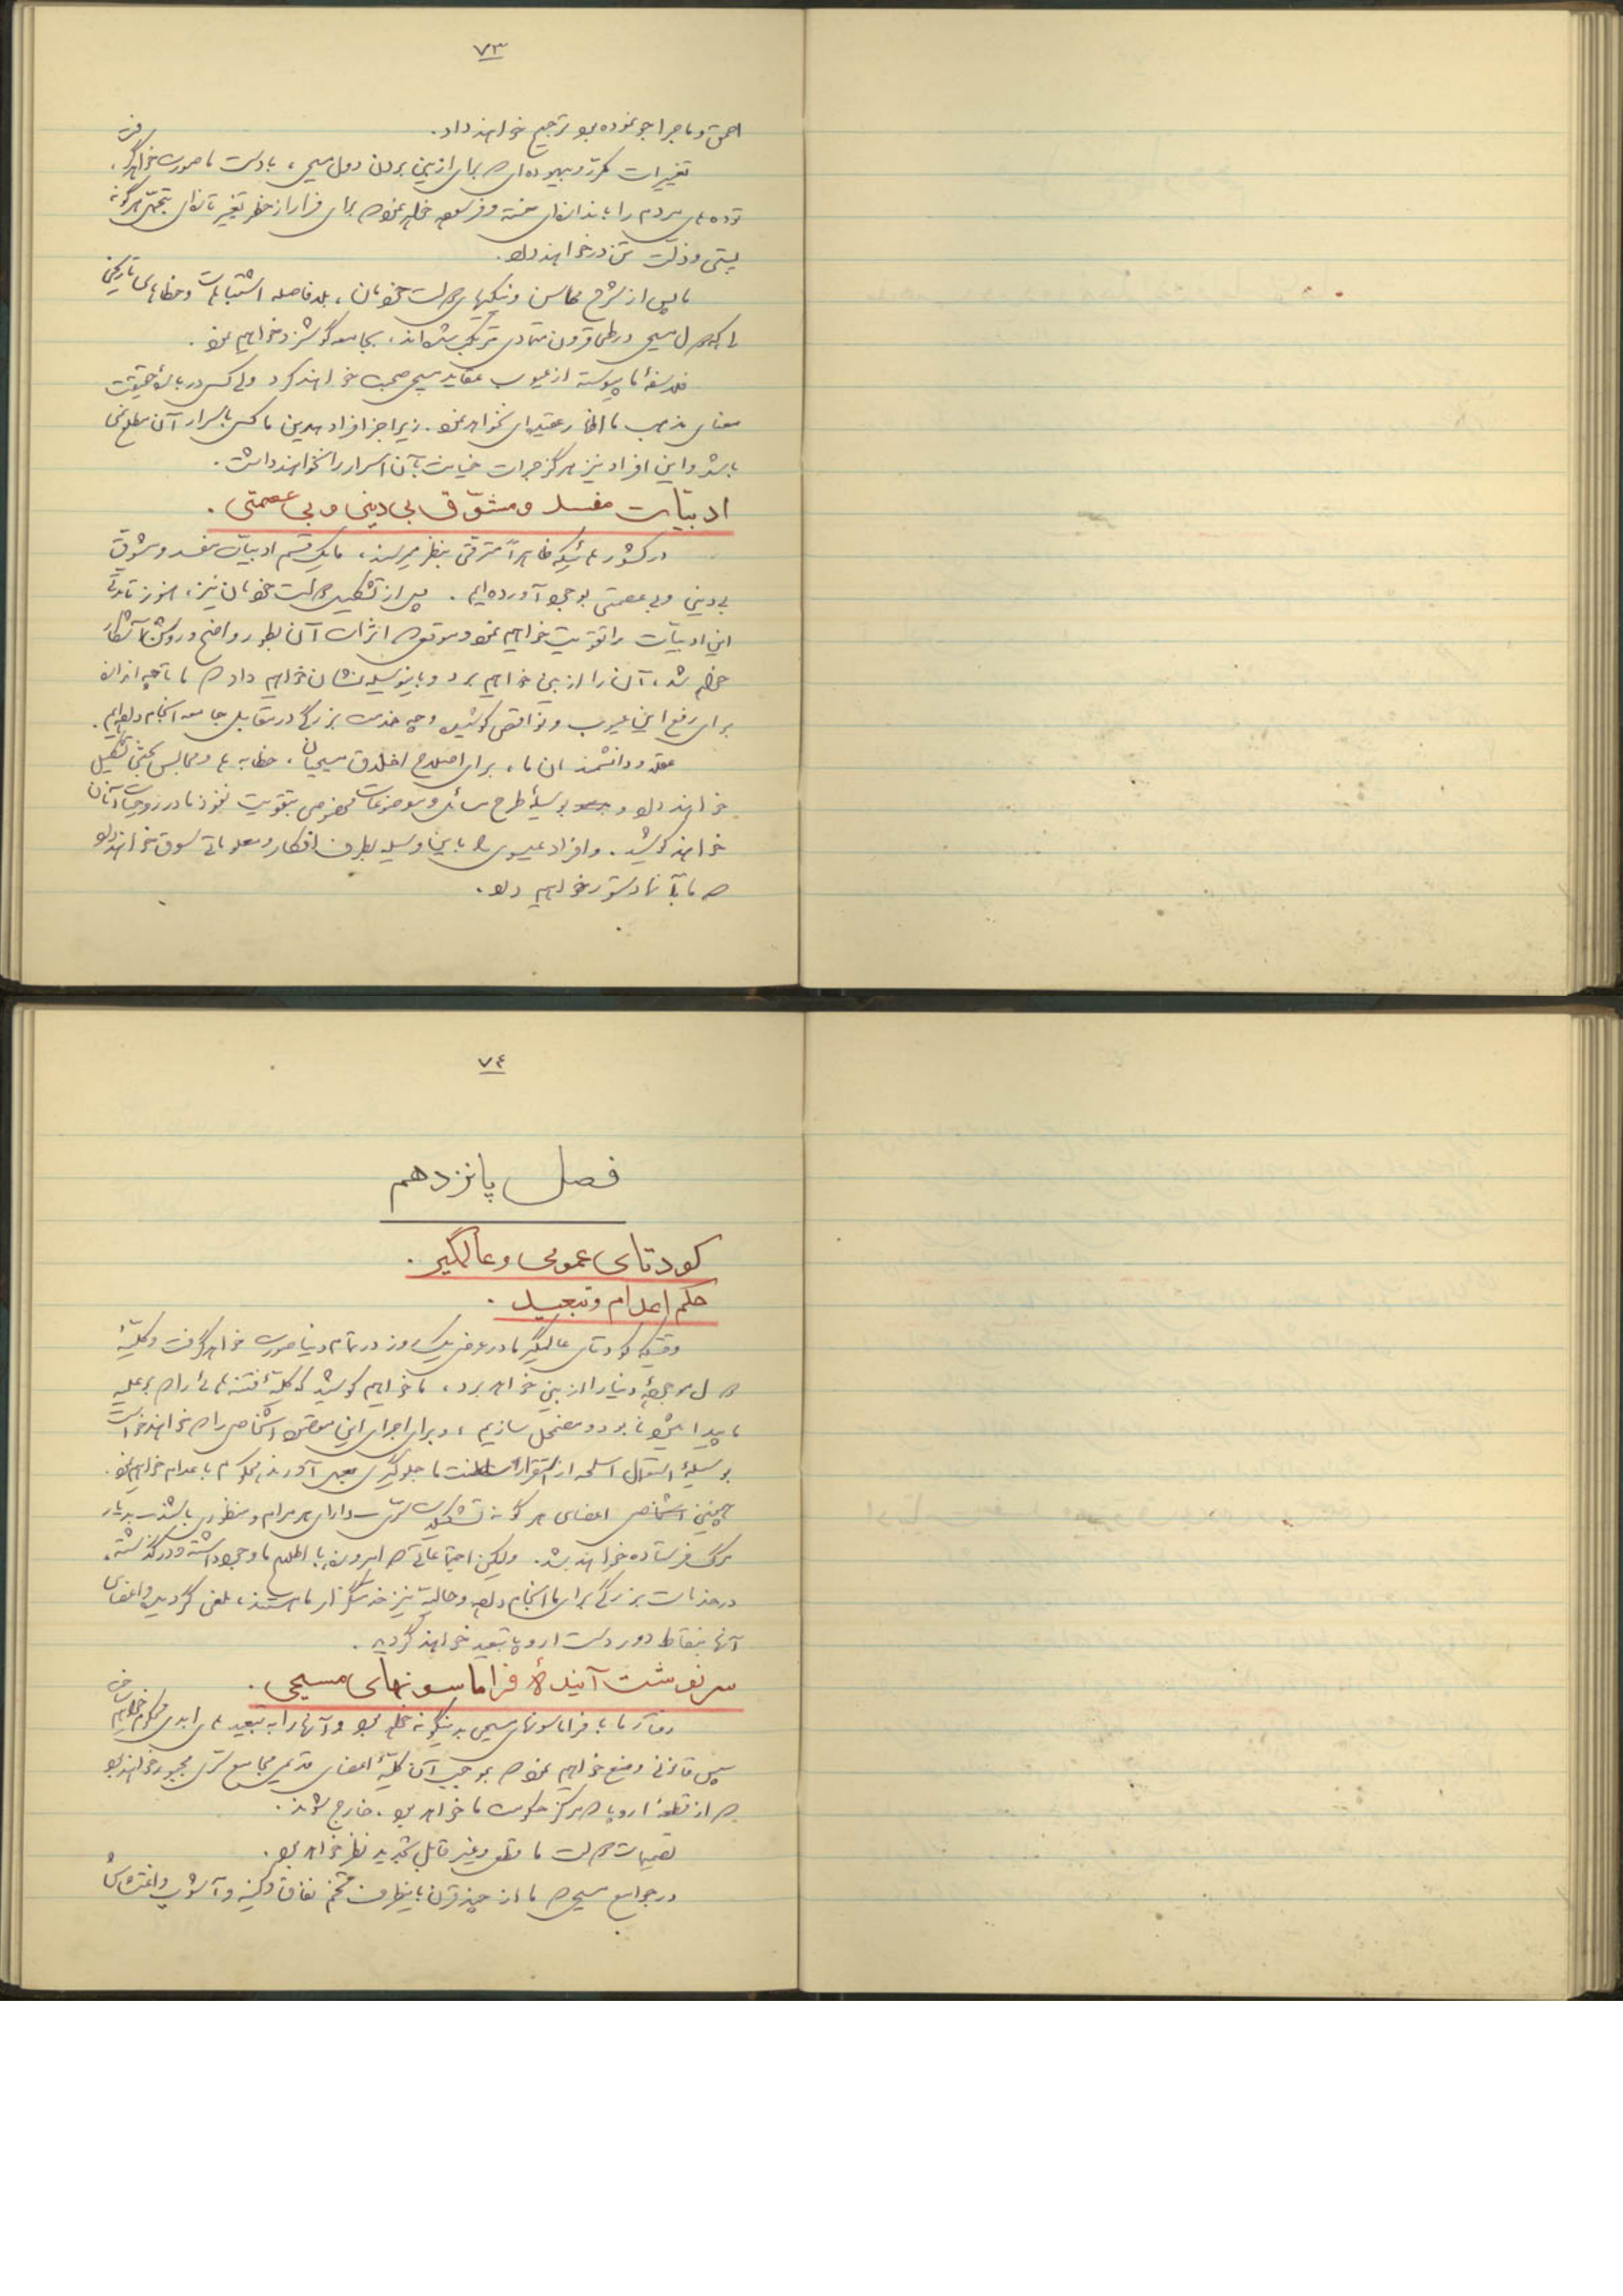 ۷۳
احمق و ماجراجو نموده بود ترجیح خواهند داد.
تغییرات مکرر و بیهوده‌ای که برای از بین بردن دول مسیحی، بدست ما صورت خواهد گرفت،
توده‌های مردم را باندازه‌ای خسته و فرسوده خواهد نمود که برای فرار از خطر تغییر تازه‌ای بتحمل هرگونه
پستی و ذلت تن در خواهند داد.
ما پس از شرح محاسن و نیکیهای حکومت خودمان، بلافاصله اشتباهات و خطاهای تاریخی
را که دول مسیحی در طی قرون متمادی مرتکب شده‌اند، بجامعه گوشزد خواهیم نمود.
فلاسفهٔ ما پیوسته از عیوب عقاید مسیحی صحبت خواهند کرد ولی کسی دربارهٔ حقیقت
معنای مذهب ما اظهار عقیده‌ای نخواهد نمود. زیرا جز افراد بیدین ما کسی باسرار آن مطلع نمی
باشد و این افراد نیز هرگز جرأت خیانت بآن اسرار را نخواهند داشت.
ادبیّات مفسد و مشوّق بی دینی و بی عصمتی.
در کشورهائیکه ظاهراً مترقی بنظر میرسند، ما یک قسم ادبیات مفسد و مشوق
بی‌دینی و بی‌عصمتی بوجود آورده‌ایم. پس از تشکیل حکومت خودمان نیز، هنوز تا مدتی
این ادبیّات را تقویت خواهیم نمود و موقعی که اثرات آن بطور واضح و روشن آشکار
خواهد شد، آن را از بین خواهیم برد و باینوسیله نشان خواهیم داد که ما تا چه اندازه
برای رفع این عیوب و نواقص کوشیده و چه خدمت بزرگی در مقابل جامعه انجام داده‌ایم.
عقلا و دانشمندان ما، برای اصلاح اخلاق مسیحیان، خطابه‌ها و مجالس بحثی تشکیل
خواهند داد و بوسیلهٔ طرح مسائل و موضوعات مخصوصی بتقویت نفوذ ما در روحیات آنان
خواهند کوشید. و افراد عیسوی را باین وسیله بطرف افکار و معلوماتی سوق خواهند داد
که ما بآنها دستور خواهیم داد.
۷٤
فصل پانزدهم
کودتای عمومی و عالمگیر.
حکم اعدام و تبعید.
وقتیکه کودتای عالمگیر ما در عرض یک روز در تمام دنیا صورت خواهد گرفت و کلیّهٔ
دول موجودهٔ دنیا را از بین خواهد برد، ما خواهیم کوشید که کلیهٔ فتنه‌هائی را که بر علیه
ما پیدا میشود نابود و مضمحل سازیم، و برای اجرای این مقصود اشخاصی را که خواهند خواست
بوسیلهٔ استعمال اسلحه از استقرار سلطنت ما جلوگیری بعمل آورند محکوم باعدام خواهیم نمود.
همچنین اشخاص اعضای هرگونه تشکیلات سرّی دارای هر مرام و منظوری باشند بدیار
مرگ فرستاده خواهند شد. ولیکن اجتماعاتی که امروزه با اطلاع ما وجود داشته و در گذشته،
در خدمات بزرگی برای ما انجام داده و حالیه نیز خدمتگزار ما هستند، ملغی گردیده و اعضای
آنها بنقاط دوردست اروپا تبعید خواهند گردید.
سرنوشت آیندهٔ فراماسونهای مسیحی.
رفتار ما با فراماسونهای مسیحی بدینگونه خواهد بود و آنها را به تبعیدهای ابدی محکوم خواهیم ساخت
سپس قانونی وضع خواهیم نمود که بموجب آن کلیّهٔ اعضای قدیمی مجامع سرّی مجبور خواهند بود
که از قطعهٔ اروپا که مرکز حکومت ما خواهد بود، خارج شوند.
تصمیمات حکومت ما قطعی و غیر قابل تجدید نظر خواهد بود.
در جوامع مسیحی که ما از چند قرن باینطرف تخم نفاق و کینه و آشوب و اغتشاش